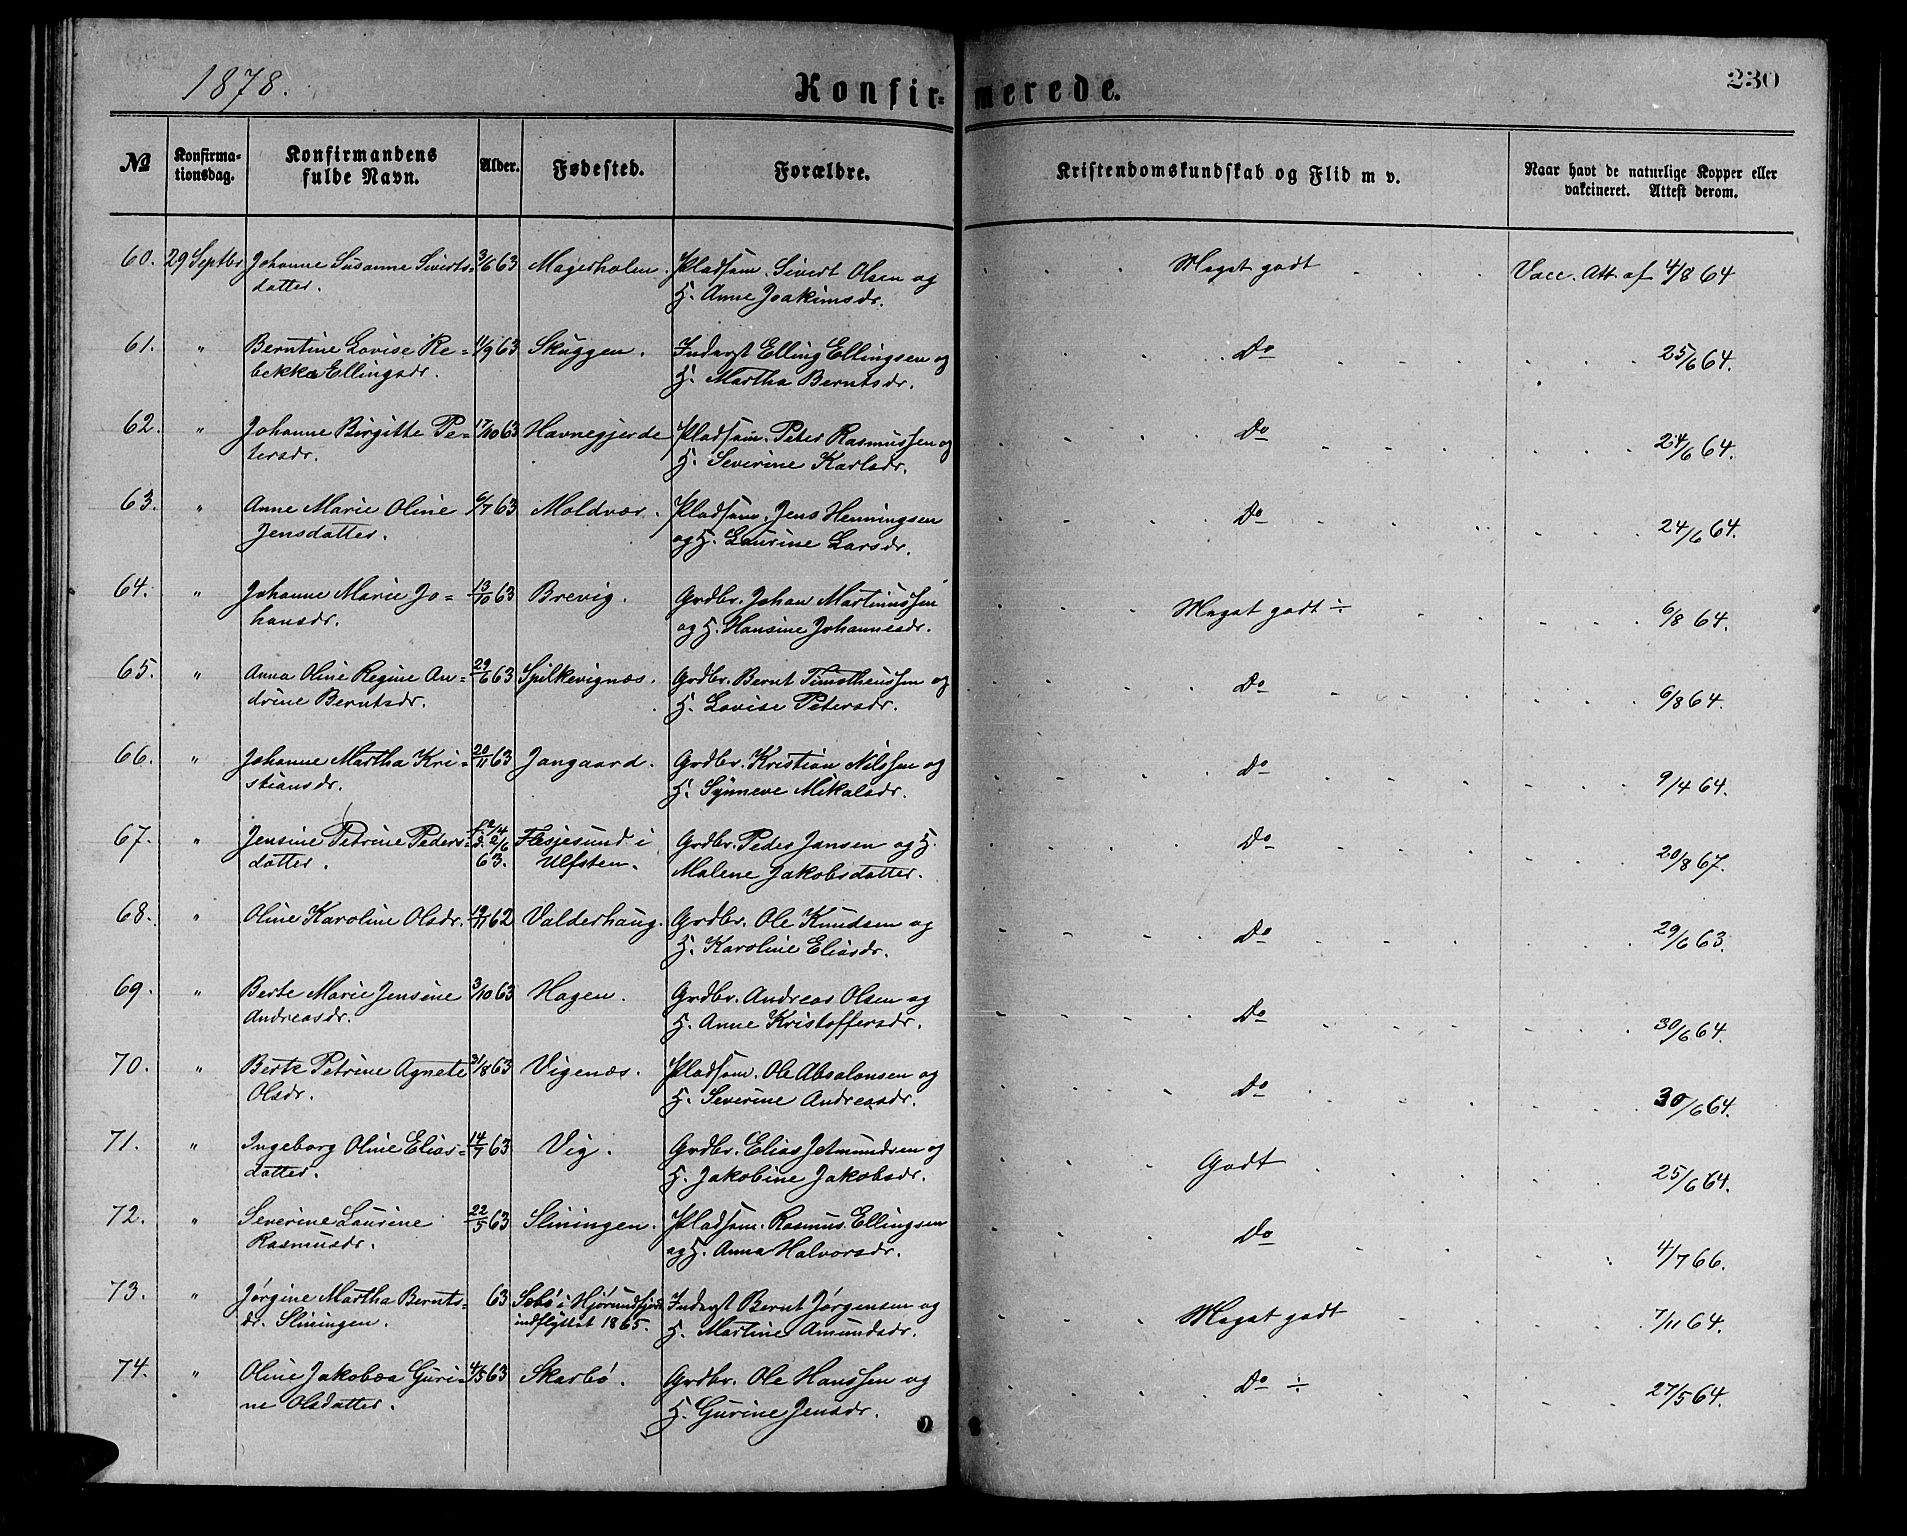 1878.
Konfirmerede.
230
No
Konfirma-
tionsdag.
Konfirmandens
fulde Navn.
Alder.
Fødested.
Forældre.
Kristendomskundskab og Flid m v.
Naar havt de naturlige Kopper eller
vakcineret. Attest derom.
60. 29 Septbr Johanne Susanne Siverts= 3/6 63 Magerholm. Pladsm. Sivert Olsen og Meget godt Vacc. Att. af 4/8 64
datter. H. Anne Joakimsdr.
61. " Berntine Lovise Re= 11/9 63 Skuggen. Inderst Elling Ellingsen og Do 25/6 64.
bekka Ellingsdr. H. Martha Berntsdr.
62. " Johanne Birgitte Pe= 17/10 63 Havnegjerde Pladsm. Peter Rasmussen og Do 24/6 64.
tersdr. H. Severine Karlsdr.
63. " Anne Marie Oline 6/7 63 Moldvær. Pladsm. Jens Henningsen Do 24/6 64.
Jensdatter. og H. Laurine Larsdr.
64. " Johanne Marie Jo= 13/10 63 Brevig. Grdbr. Johan Martinussen Meget godt ÷ 6/8 64.
hansdr. og H. Hansine Johannesdr.
65. " Anna Oline Regine An= 29/6 63 Spilkevignæs. Grdbr. Bernt Timotheussen og Do 6/8 64.
drine Berntsdr. H. Lovise Petersdr.
66. " Johanne Martha Kri= 20/11 63 Jangaard. Grdbr. Kristian Nilssen og Do 9/4 64.
stiansdr. H. Synneve Mikalsdr.
67. " Jensine Petrine Peders= f. 2/4 Flesjesund i Grdbr. Peder Jansen og H. Do 20/8 67.
datter. 2/6 63. Ulfsten. Malene Jakobsdatter.
68. " Oline Karoline Olsdr. 19/11 62 Valderhaug. Grdbr. Ole Knudsen og Do 29/6 63.
H. Karoline Eliasdr.
69. " Berte Marie Jensine 3/10 63 Hagen. Grdbr. Andreas Olsen og Do 30/6 64.
Andreasdr. H. Anne Kristoffersdr.
70. " Berte Petrine Agnete 31/8 63 Vigenæs. Pladsm. Ole Absalonsen og Do 30/6 64.
Olsdr. H. Severine Andreasdr.
71. " Ingeborg Oline Elias= 14/7 63 Vig. Grdbr. Elias Jetmundsen og Godt 25/6 64.
datter. H. Jakobine Jakobsdr.
72. " Severine Laurine 22/5 63 Slinningen. Pladsm. Rasmus Ellingsen Do 4/7 66.
Rasmusdr. og H. Anna Halvorsdr.
73. " Jørgine Martha Bernts= 63 Sæbø i Hjørundfjord Inderst Bernt Jørgensen og Meget godt 7/11 64.
dr. Slinningen. indflyttet 1865. H. Martine Amundsdr.
74. " Oline Jakobæa Guri= 4/5 63 Skarbø. Grdbr. Ole Hanssen og Do ÷ 27/5 64.
ne Olsdatter. H. Gurine Jensdr.